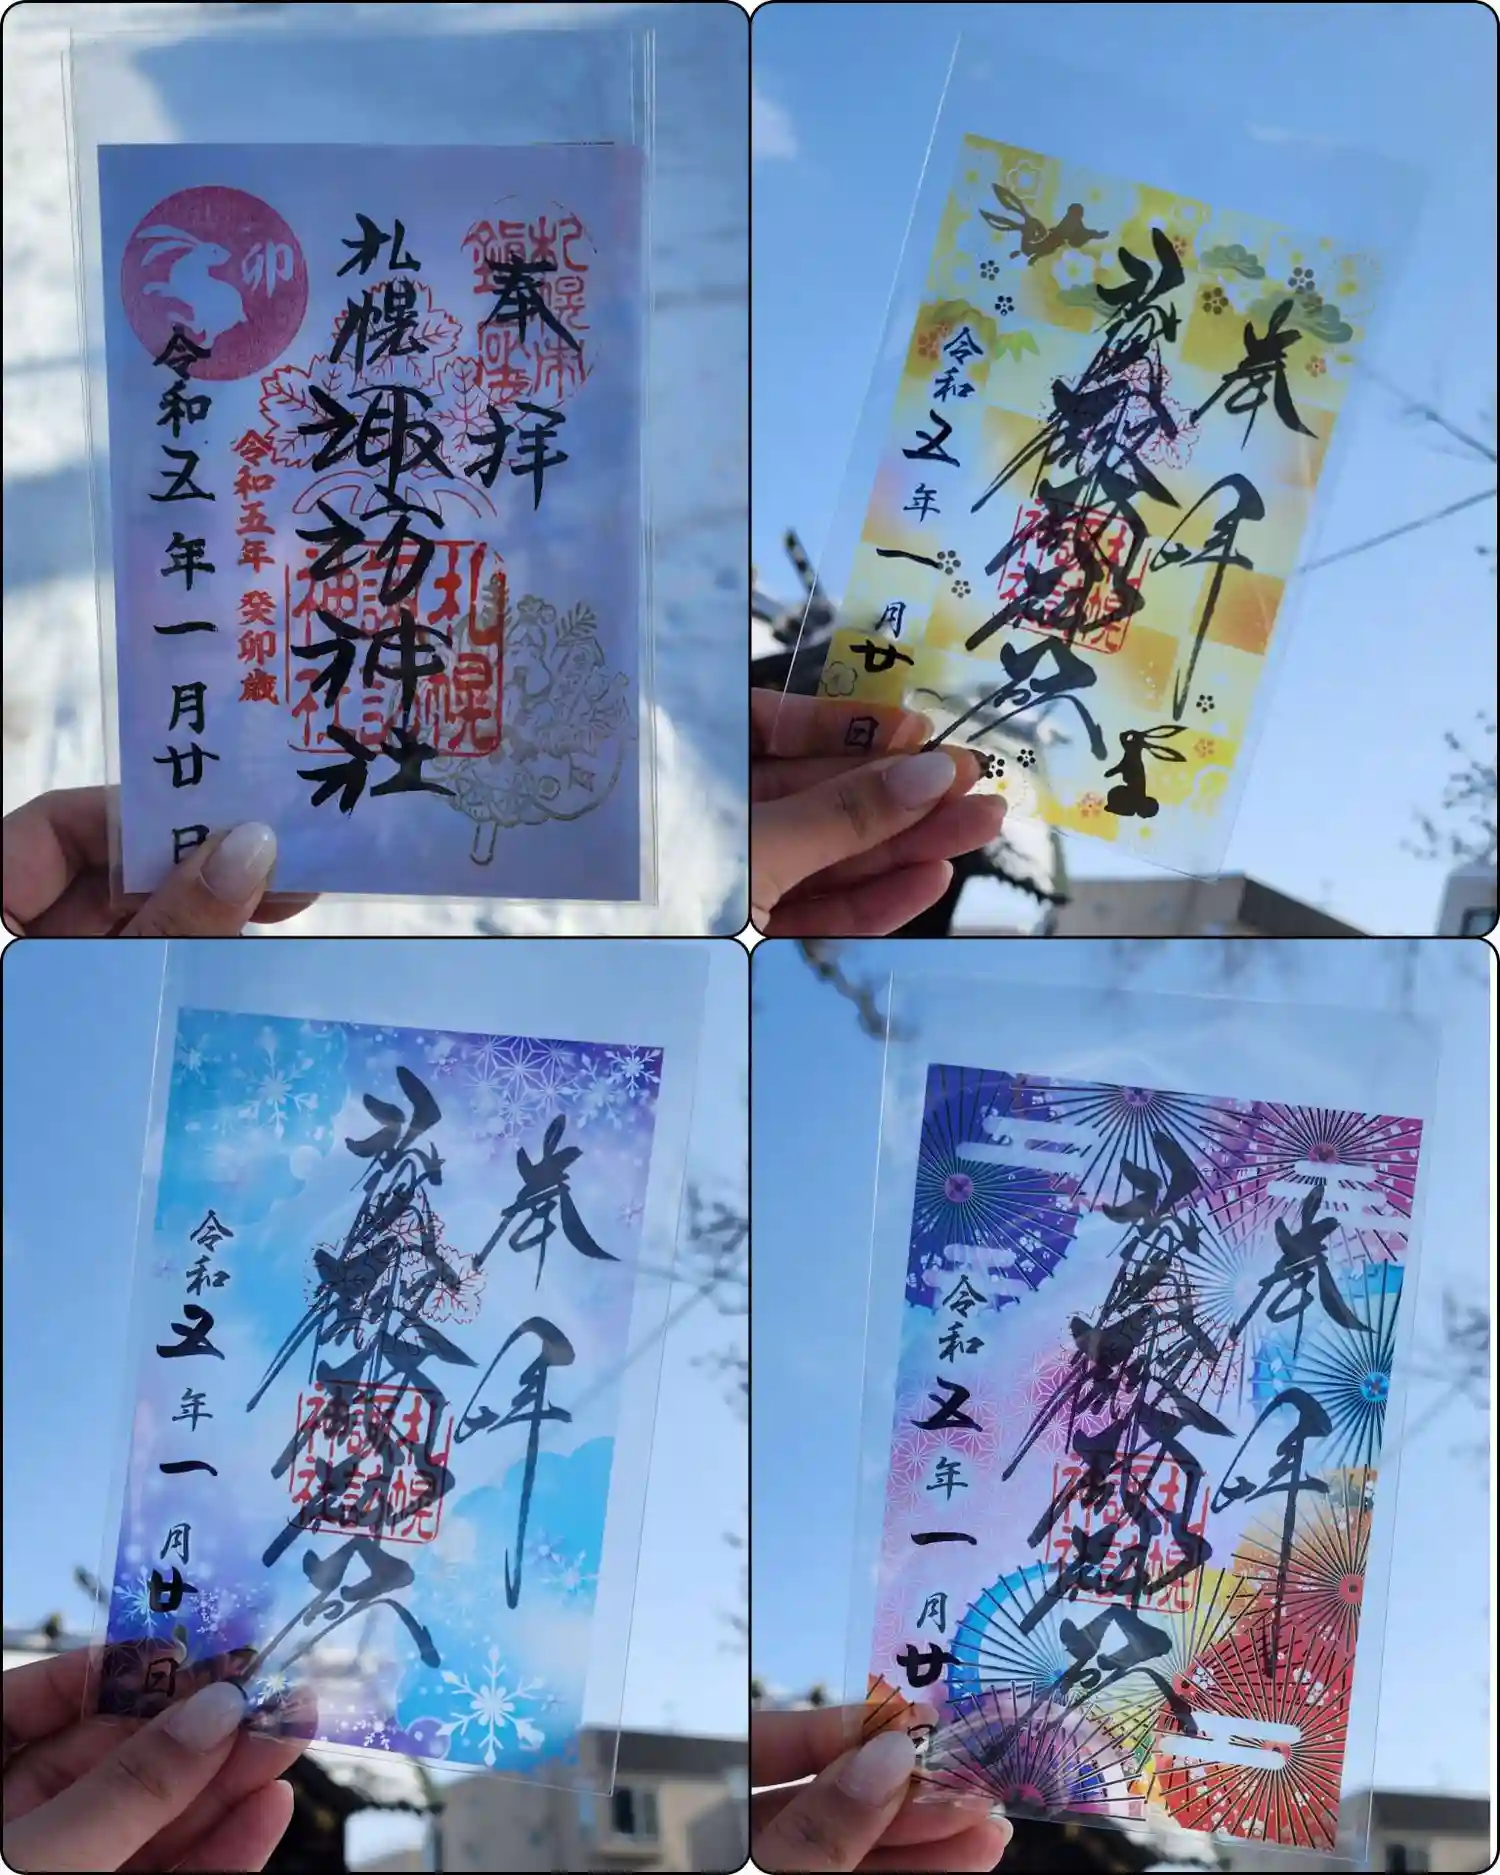 奉拝
札幌諏訪神社
札幌諏訪神社
令和五年 癸卯歳
卯
令和五年一月廿日
奉拝
札幌諏訪神社
令和五年一月廿日
奉拝
札幌諏訪神社
令和五年一月廿日
奉拝
札幌諏訪神社
令和五年一月廿日